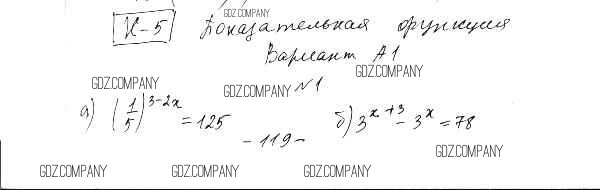 GDZ.COMPANY
К-5 Показательная функция
Вариант А1
GDZ.COMPANY
GDZ.COMPANY
GDZ.COMPANY
№1
а) (1/5)^(3-2x) = 125
б) 3^(x+3) - 3^x = 78
- 119 -
GDZ.COMPANY
GDZ.COMPANY
GDZ.COMPANY
GDZ.COMPANY